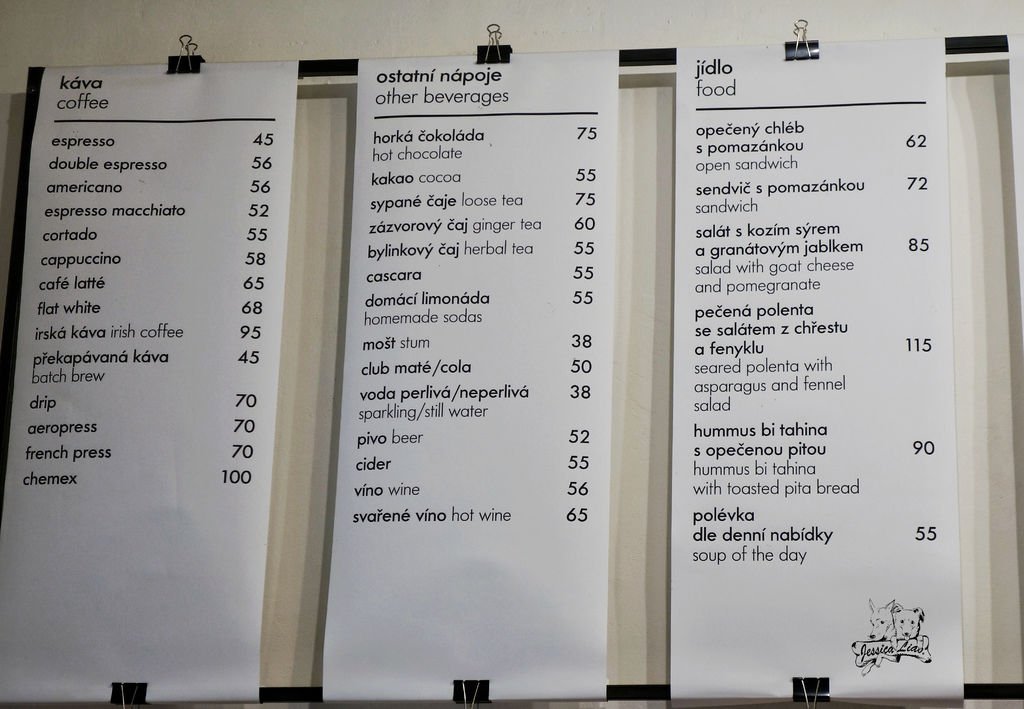 káva
coffee
espresso 45
double espresso 56
americano 56
espresso macchiato 52
cortado 55
cappuccino 58
café latté 65
flat white 68
irská káva irish coffee 95
překapávaná káva 45
batch brew
drip 70
aeropress 70
french press 70
chemex 100
ostatní nápoje
other beverages
horká čokoláda 75
hot chocolate
kakao cocoa 55
sypané čaje loose tea 75
zázvorový čaj ginger tea 60
bylinkový čaj herbal tea 55
cascara 55
domácí limonáda 55
homemade sodas
mošt stum 38
club maté/cola 50
voda perlivá/neperlivá 38
sparkling/still water
pivo beer 52
cider 55
víno wine 56
svařené víno hot wine 65
jídlo
food
opečený chléb
s pomazánkou 62
open sandwich
sendvič s pomazánkou 72
sandwich
salát s kozím sýrem
a granátovým jablkem 85
salad with goat cheese
and pomegranate
pečená polenta
se salátem z chřestu
a fenyklu 115
seared polenta with
asparagus and fennel
salad
hummus bi tahina
s opečenou pitou 90
hummus bi tahina
with toasted pita bread
polévka
dle denní nabídky 55
soup of the day
Jessica